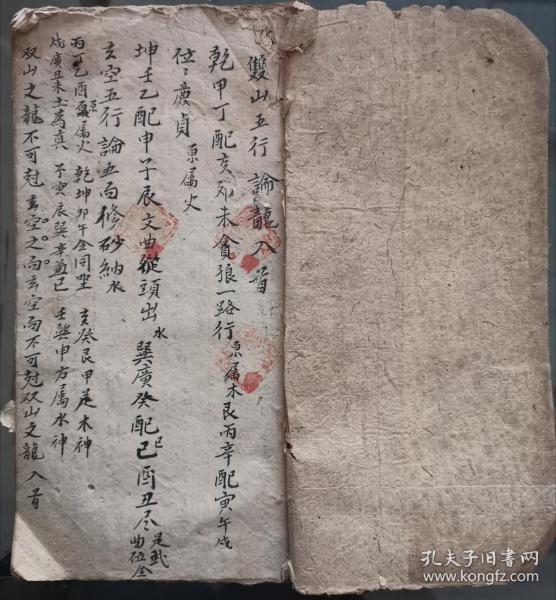 雙山五行 論龍入首
乾甲丁配亥卯未貪狼一路行原属木艮丙辛配寅午戌
位々廉貞原属火
坤壬乙配申子辰文曲從頭出水 巽廣癸配己巳酉丑尽是武曲位金
玄空五行 論五向修砂納水
丙丁乙酉原属火 乾坤卯午金同坐 亥癸艮甲是木神
戌廣丑未土爲真 子寅辰巽辛兼己 壬巽申方属水神
双山之龍不可尅玄空之向玄空向不可尅双山之龍入首
孔夫子旧书网
www.kongfz.com